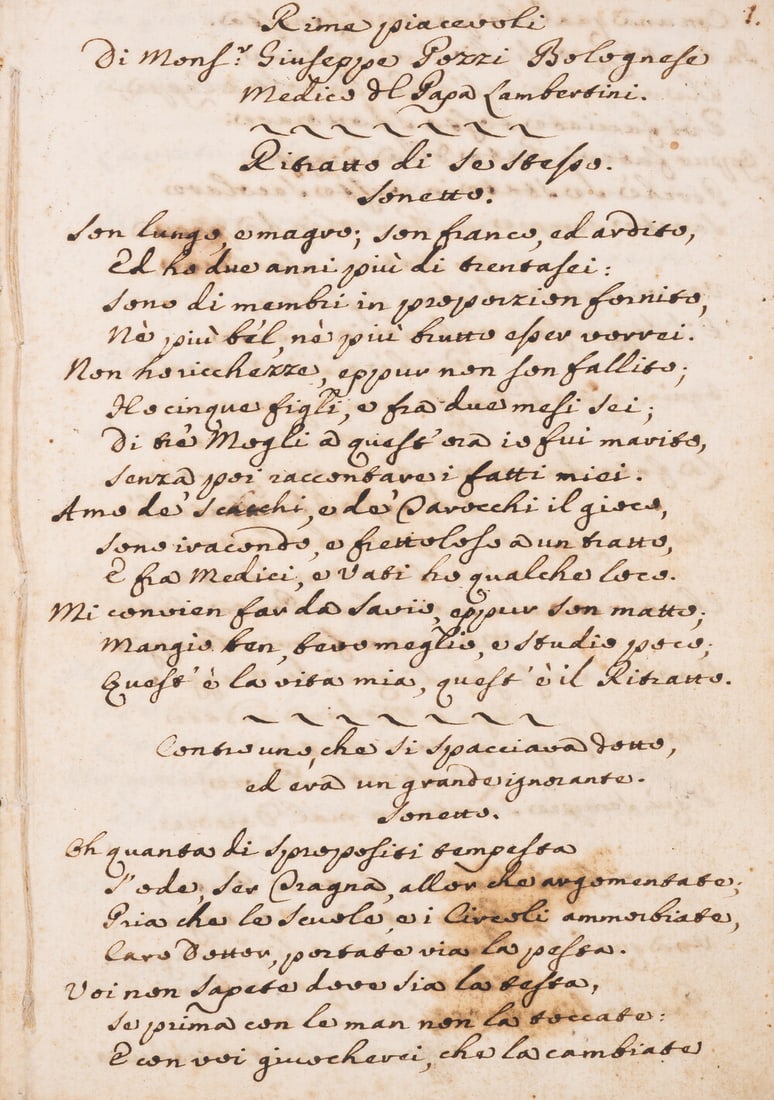 1.
Rime piacevoli
Di Mons.r Giuseppe Pozzi Bolognese
Medico dl Papa Lambertini.
Ritratto di se stesso.
Sonetto.
Son lungo, e magro; son franco, ed ardito,
Ed ho due anni più di trentasei:
Sono di membri in proporzion fornito,
Nè più bèl, nè più brutto esser vorrei.
Non ho ricchezze, eppur non son fallito;
Ho cinque figli, e frà due mesi sei;
Di trè Mogli à quest'orà io fui marito,
Senzà poi raccontare i fatti miei.
Amo de' Scacchi, e de' Tarocchi il gioco,
Sono iracondo, e frettoloso à un tratto,
E frà Medici, e Vati ho qualche loco.
Mi convien far dà Savio, eppur son matto;
Mangio ben, bevo meglio, e studio poco;
Quest'è la vita mia, quest'è il Ritratto.
Contro uno, che si spacciavà dotto,
ed erà un grande ignorante.
Sonetto.
Oh quanta di spropositi tempesta
S'ode, ser Tragnà, allor che argomentate;
Prià che le Scuole, e i Circoli ammorbiate,
Caro Dottor, portate via la pesta.
Voi non sapete dove sia la testa,
Se primà con le man non la toccate:
E con voi giuocherei, che la cambiate